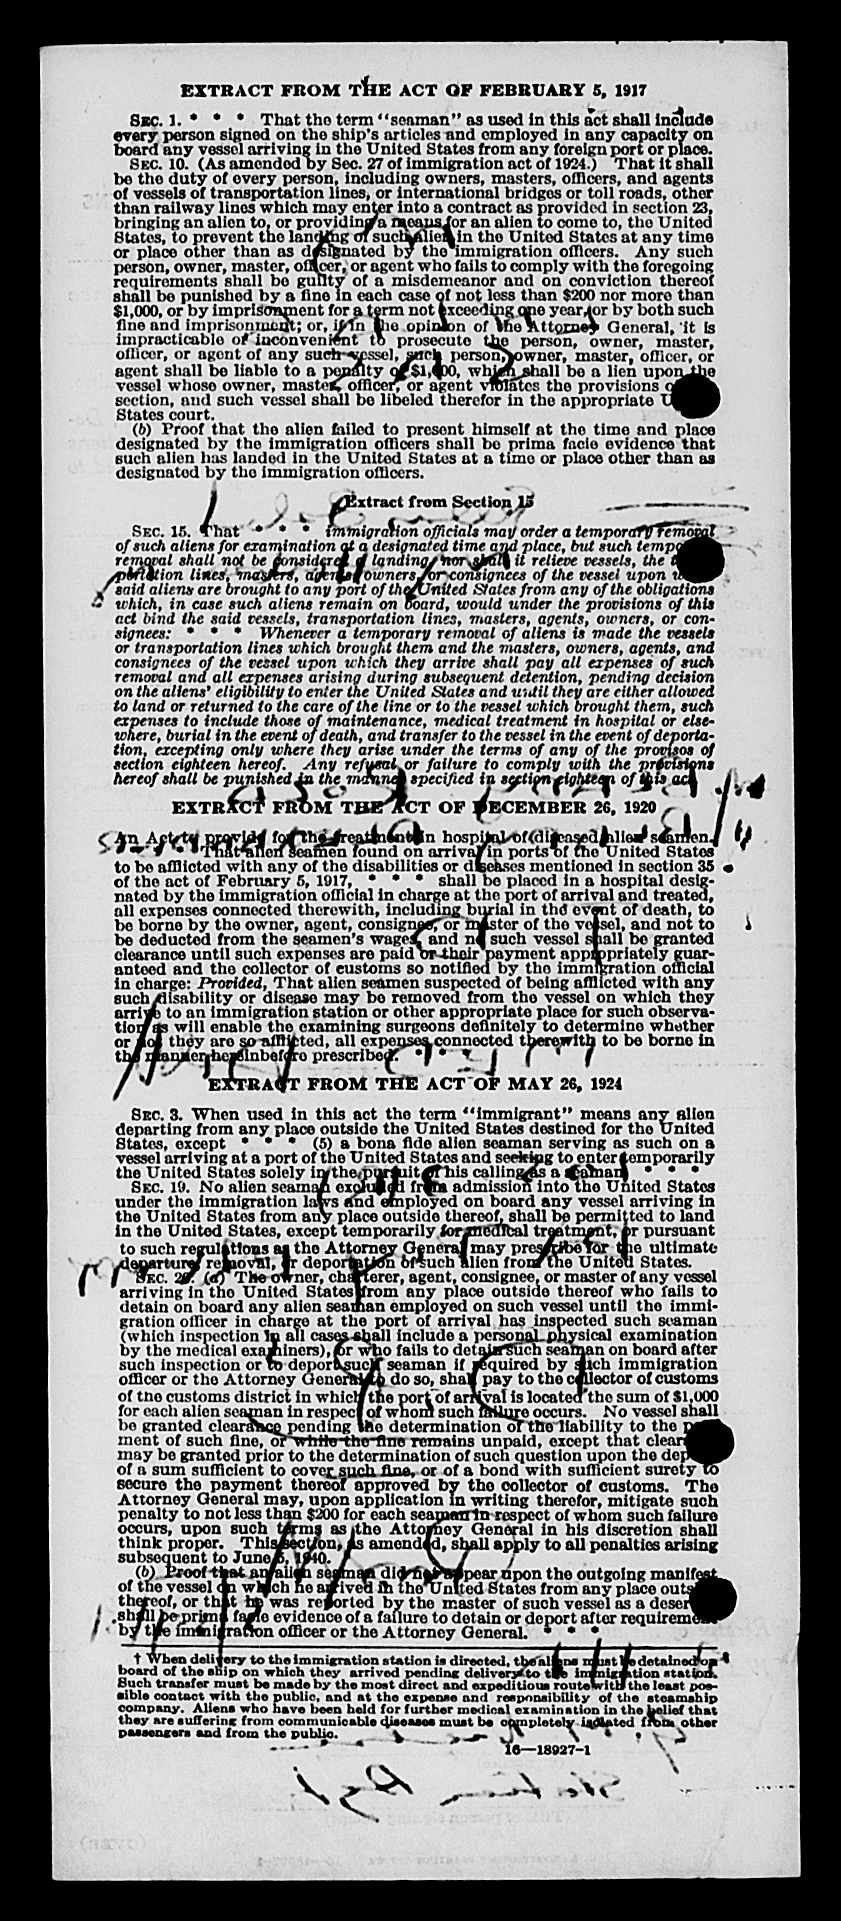 EXTRACT FROM THE ACT OF FEBRUARY 5, 1917
SEC. 1. * * * That the term "seaman" as used in this act shall include
every person signed on the ship's articles and employed in any capacity on
board any vessel arriving in the United States from any foreign port or place.
SEC. 10. (As amended by Sec. 27 of immigration act of 1924.) That it shall
be the duty of every person, including owners, masters, officers, and agents
of vessels of transportation lines, or international bridges or toll roads, other
than railway lines which may enter into a contract as provided in section 23,
bringing an alien to, or providing a means for an alien to come to, the United
States, to prevent the landing of such alien in the United States at any time
or place other than as designated by the immigration officers. Any such
person, owner, master, officer, or agent who fails to comply with the foregoing
requirements shall be guilty of a misdemeanor and on conviction thereof
shall be punished by a fine in each case of not less than $200 nor more than
$1,000, or by imprisonment for a term not exceeding one year, or by both such
fine and imprisonment; or, if in the opinion of the Attorney General, it is
impracticable or inconvenient to prosecute the person, owner, master,
officer, or agent of any such vessel, such person, owner, master, officer, or
agent shall be liable to a penalty of $1,000, which shall be a lien upon the
vessel whose owner, master, officer, or agent violates the provisions
section, and such vessel shall be libeled therefor in the appropriate
States court.
(b) Proof that the alien failed to present himself at the time and place
designated by the immigration officers shall be prima facie evidence that
such alien has landed in the United States at a time or place other than as
designated by the immigration officers.
Extract from Section 15
SEC. 15. That * * * immigration officials may order a temporary removal
of such aliens for examination at a designated time and place, but such
removal shall not be considered a landing, nor shall it relieve vessels, the
portation lines, masters, agents, owners, or consignees of the vessel upon
said aliens are brought to any port of the United States from any of the obligations
which, in case such aliens remain on board, would under the provisions of this
act bind the said vessels, transportation lines, masters, agents, owners, or con-
signees: * * * Whenever a temporary removal of aliens is made the vessels
or transportation lines which brought them and the masters, owners, agents, and
consignees of the vessel upon which they arrive shall pay all expenses of such
removal and all expenses arising during subsequent detention, pending decision
on the aliens' eligibility to enter the United States and until they are either allowed
to land or returned to the care of the line or to the vessel which brought them, such
expenses to include those of maintenance, medical treatment in hospital or else-
where, burial in the event of death, and transfer to the vessel in the event of deporta-
tion, excepting only where they arise under the terms of any of the provisos of
section eighteen hereof. Any refusal or failure to comply with the provisions
hereof shall be punished in the manner specified in section eighteen of this act.
EXTRACT FROM THE ACT OF DECEMBER 26, 1920
An Act to provide for the treatment in hospital of diseased alien seamen.
That alien seamen found on arrival in ports of the United States
to be afflicted with any of the disabilities or diseases mentioned in section 35
of the act of February 5, 1917, * * * shall be placed in a hospital desig-
nated by the immigration official in charge at the port of arrival and treated,
all expenses connected therewith, including burial in the event of death, to
be borne by the owner, agent, consignee, or master of the vessel, and not to
be deducted from the seamen's wages, and no such vessel shall be granted
clearance until such expenses are paid or their payment appropriately guar-
anteed and the collector of customs so notified by the immigration official
in charge: Provided, That alien seamen suspected of being afflicted with any
such disability or disease may be removed from the vessel on which they
arrive to an immigration station or other appropriate place for such observa-
tion as will enable the examining surgeons definitely to determine whether
or not they are so afflicted, all expenses connected therewith to be borne in
the manner hereinbefore prescribed. * * *
EXTRACT FROM THE ACT OF MAY 26, 1924
SEC. 3. When used in this act the term "immigrant" means any alien
departing from any place outside the United States destined for the United
States, except * * * (5) a bona fide alien seaman serving as such on a
vessel arriving at a port of the United States and seeking to enter temporarily
the United States solely in the pursuit of his calling as a seaman, * * * *
SEC. 19. No alien seaman excluded from admission into the United States
under the immigration laws and employed on board any vessel arriving in
the United States from any place outside thereof, shall be permitted to land
in the United States, except temporarily for medical treatment, or pursuant
to such regulations as the Attorney General may prescribe for the ultimate
departure, removal, or deportation of such alien from the United States.
SEC. 20. (a) The owner, charterer, agent, consignee, or master of any vessel
arriving in the United States from any place outside thereof who fails to
detain on board any alien seaman employed on such vessel until the immi-
gration officer in charge at the port of arrival has inspected such seaman
(which inspection in all cases shall include a personal physical examination
by the medical examiners), or who fails to detain such seaman on board after
such inspection or to deport such seaman if required by such immigration
officer or the Attorney General to do so, shall pay to the collector of customs
of the customs district in which the port of arrival is located the sum of $1,000
for each alien seaman in respect of whom such failure occurs. No vessel shall
be granted clearance pending the determination of the liability to the
ment of such fine, or while the fine remains unpaid, except that
may be granted prior to the determination of such question upon the
of a sum sufficient to cover such fine, or of a bond with sufficient surety to
secure the payment thereof approved by the collector of customs. The
Attorney General may, upon application in writing therefor, mitigate such
penalty to not less than $200 for each seaman in respect of whom such failure
occurs, upon such terms as the Attorney General in his discretion shall
think proper. This section, as amended, shall apply to all penalties arising
subsequent to June 5, 1940.
(b) Proof that an alien seaman did not appear upon the outgoing manifest
of the vessel on which he arrived in the United States from any place
thereof, or that he was reported by the master of such vessel as a
shall be prima facie evidence of a failure to detain or deport after
by the immigration officer or the Attorney General. * * *
† When delivery to the immigration station is directed, the aliens must be detained on
board of the ship on which they arrived pending delivery to the immigration station.
Such transfer must be made by the most direct and expeditious route with the least pos-
sible contact with the public, and at the expense and responsibility of the steamship
company. Aliens who have been held for further medical examination in the belief that
they are suffering from communicable diseases must be completely isolated from other
passengers and from the public.
16—18927-1